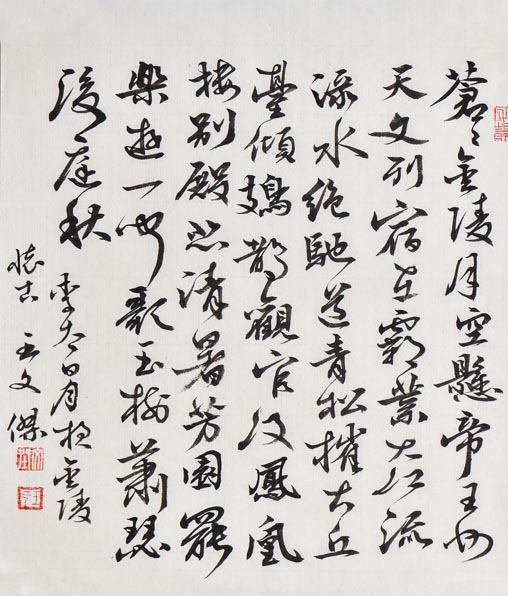 蒼〻金陵月空懸帝王州
天文列宿在霸業大江流
渌水絕馳道青松摧古丘
臺傾鳷鵲觀宮沒鳳凰
樓別殿悲清暑芳園罷
樂遊一聞歌玉樹蕭瑟
後庭秋
李太白月夜金陵
懷古 王文傑